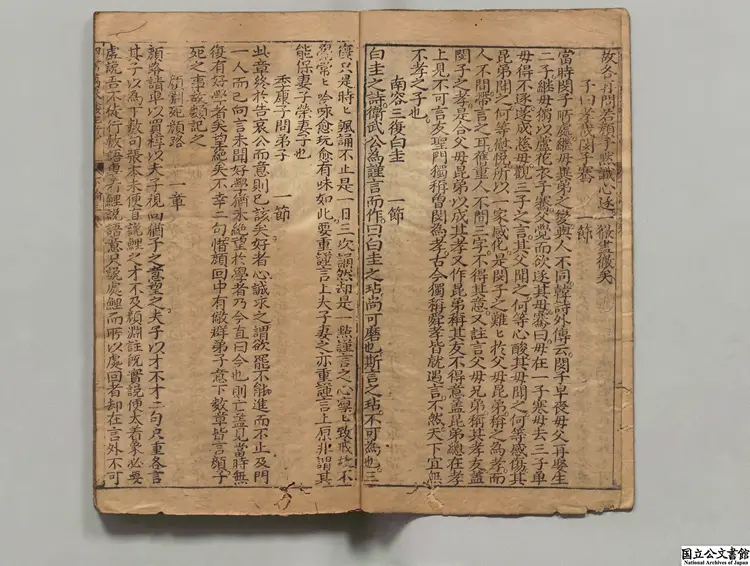 故各有問答顏子默識心遂一徹盡徹矣
子曰孝哉閔子騫　一節
當時閔子所處繼母異弟之變與人不同韓詩外傳云閔子早喪母父再娶生
二子繼母獨以蘆花衣子騫父覺而欲逐其母騫曰母在一子寒母去三子單
母得不逐遂成慈母觀三子之言其父聞之何等心酸其母聞之何等感傷其
昆弟聞之何等慙悅所以一家感化是閔子之難處於父母昆弟稱之為孝而
人不間常言之耳舊重人不間三字不得其意又註言父母兄弟稱其孝友蓋
閔子之孝是合父母昆弟以成其孝又作昆弟稱其友不得意蓋昆弟總在孝
上見不可言友聖門獨稱曾閔為孝古今獨稱舜孝皆就遇言不然天下宜無
不孝之子也
南容三復白圭　一節
白圭之詩衛武公為謹言而作曰白圭之玷尚可磨也斯言之玷不可為也三
復只是時時諷誦不止是一日三次誦然却是一點謹言之心
學常常吟咏愈玩愈有味如此要重謹言上夫子妻之亦重謹言上原非謂其
能保妻子榮妻子也
季康子問弟子　一節
此章終於告哀公而意則已該矣好者心誠求之謂欲罷不能進而不止及門
一人而已向言未聞好學猶未絕望於學者乃今直曰今也則亡蓋見當時無
復有好學者矣望絕矣不幸二句惜顏回中有儆群弟子意下數章皆言顏子
死之事故類記之
顏淵死顏路　一章
顏路請車以實槨以夫子視回猶子之意望之夫子以才不才二句只重各言
其子以為下數句張本未便自說鯉之才不及顏淵註既實說便太着象必要
處說吾不徒行數語專有鯉說語意只說處鯉而所以處回者却在言外不可
國立公文書館
National Archives of Japan